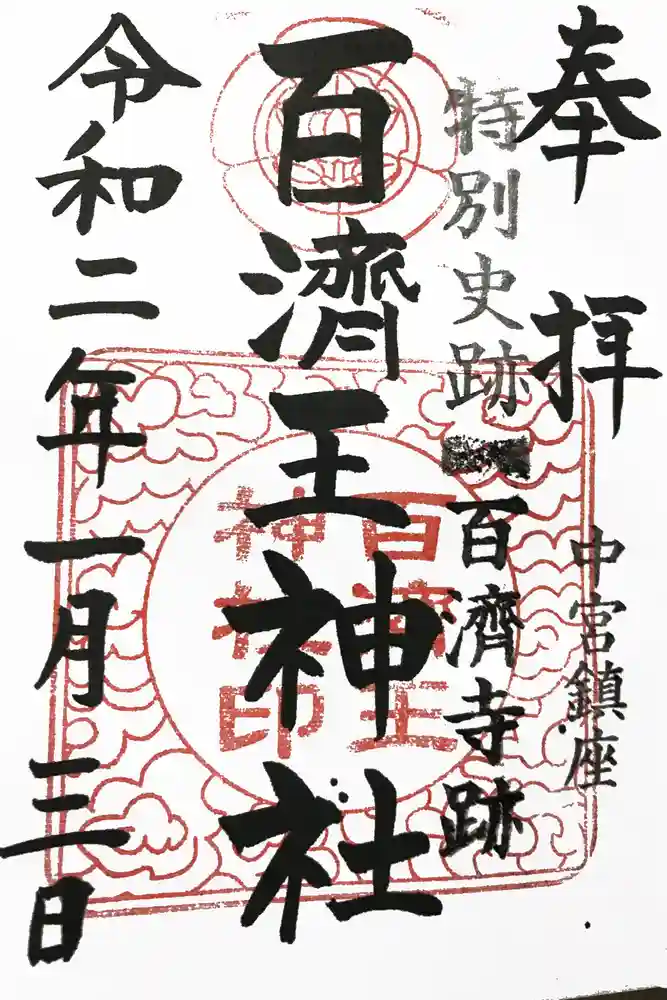 奉拝
中宮鎮座
特別史跡 百濟寺跡
百濟王神社
百濟王
神社印
令和二年一月三日